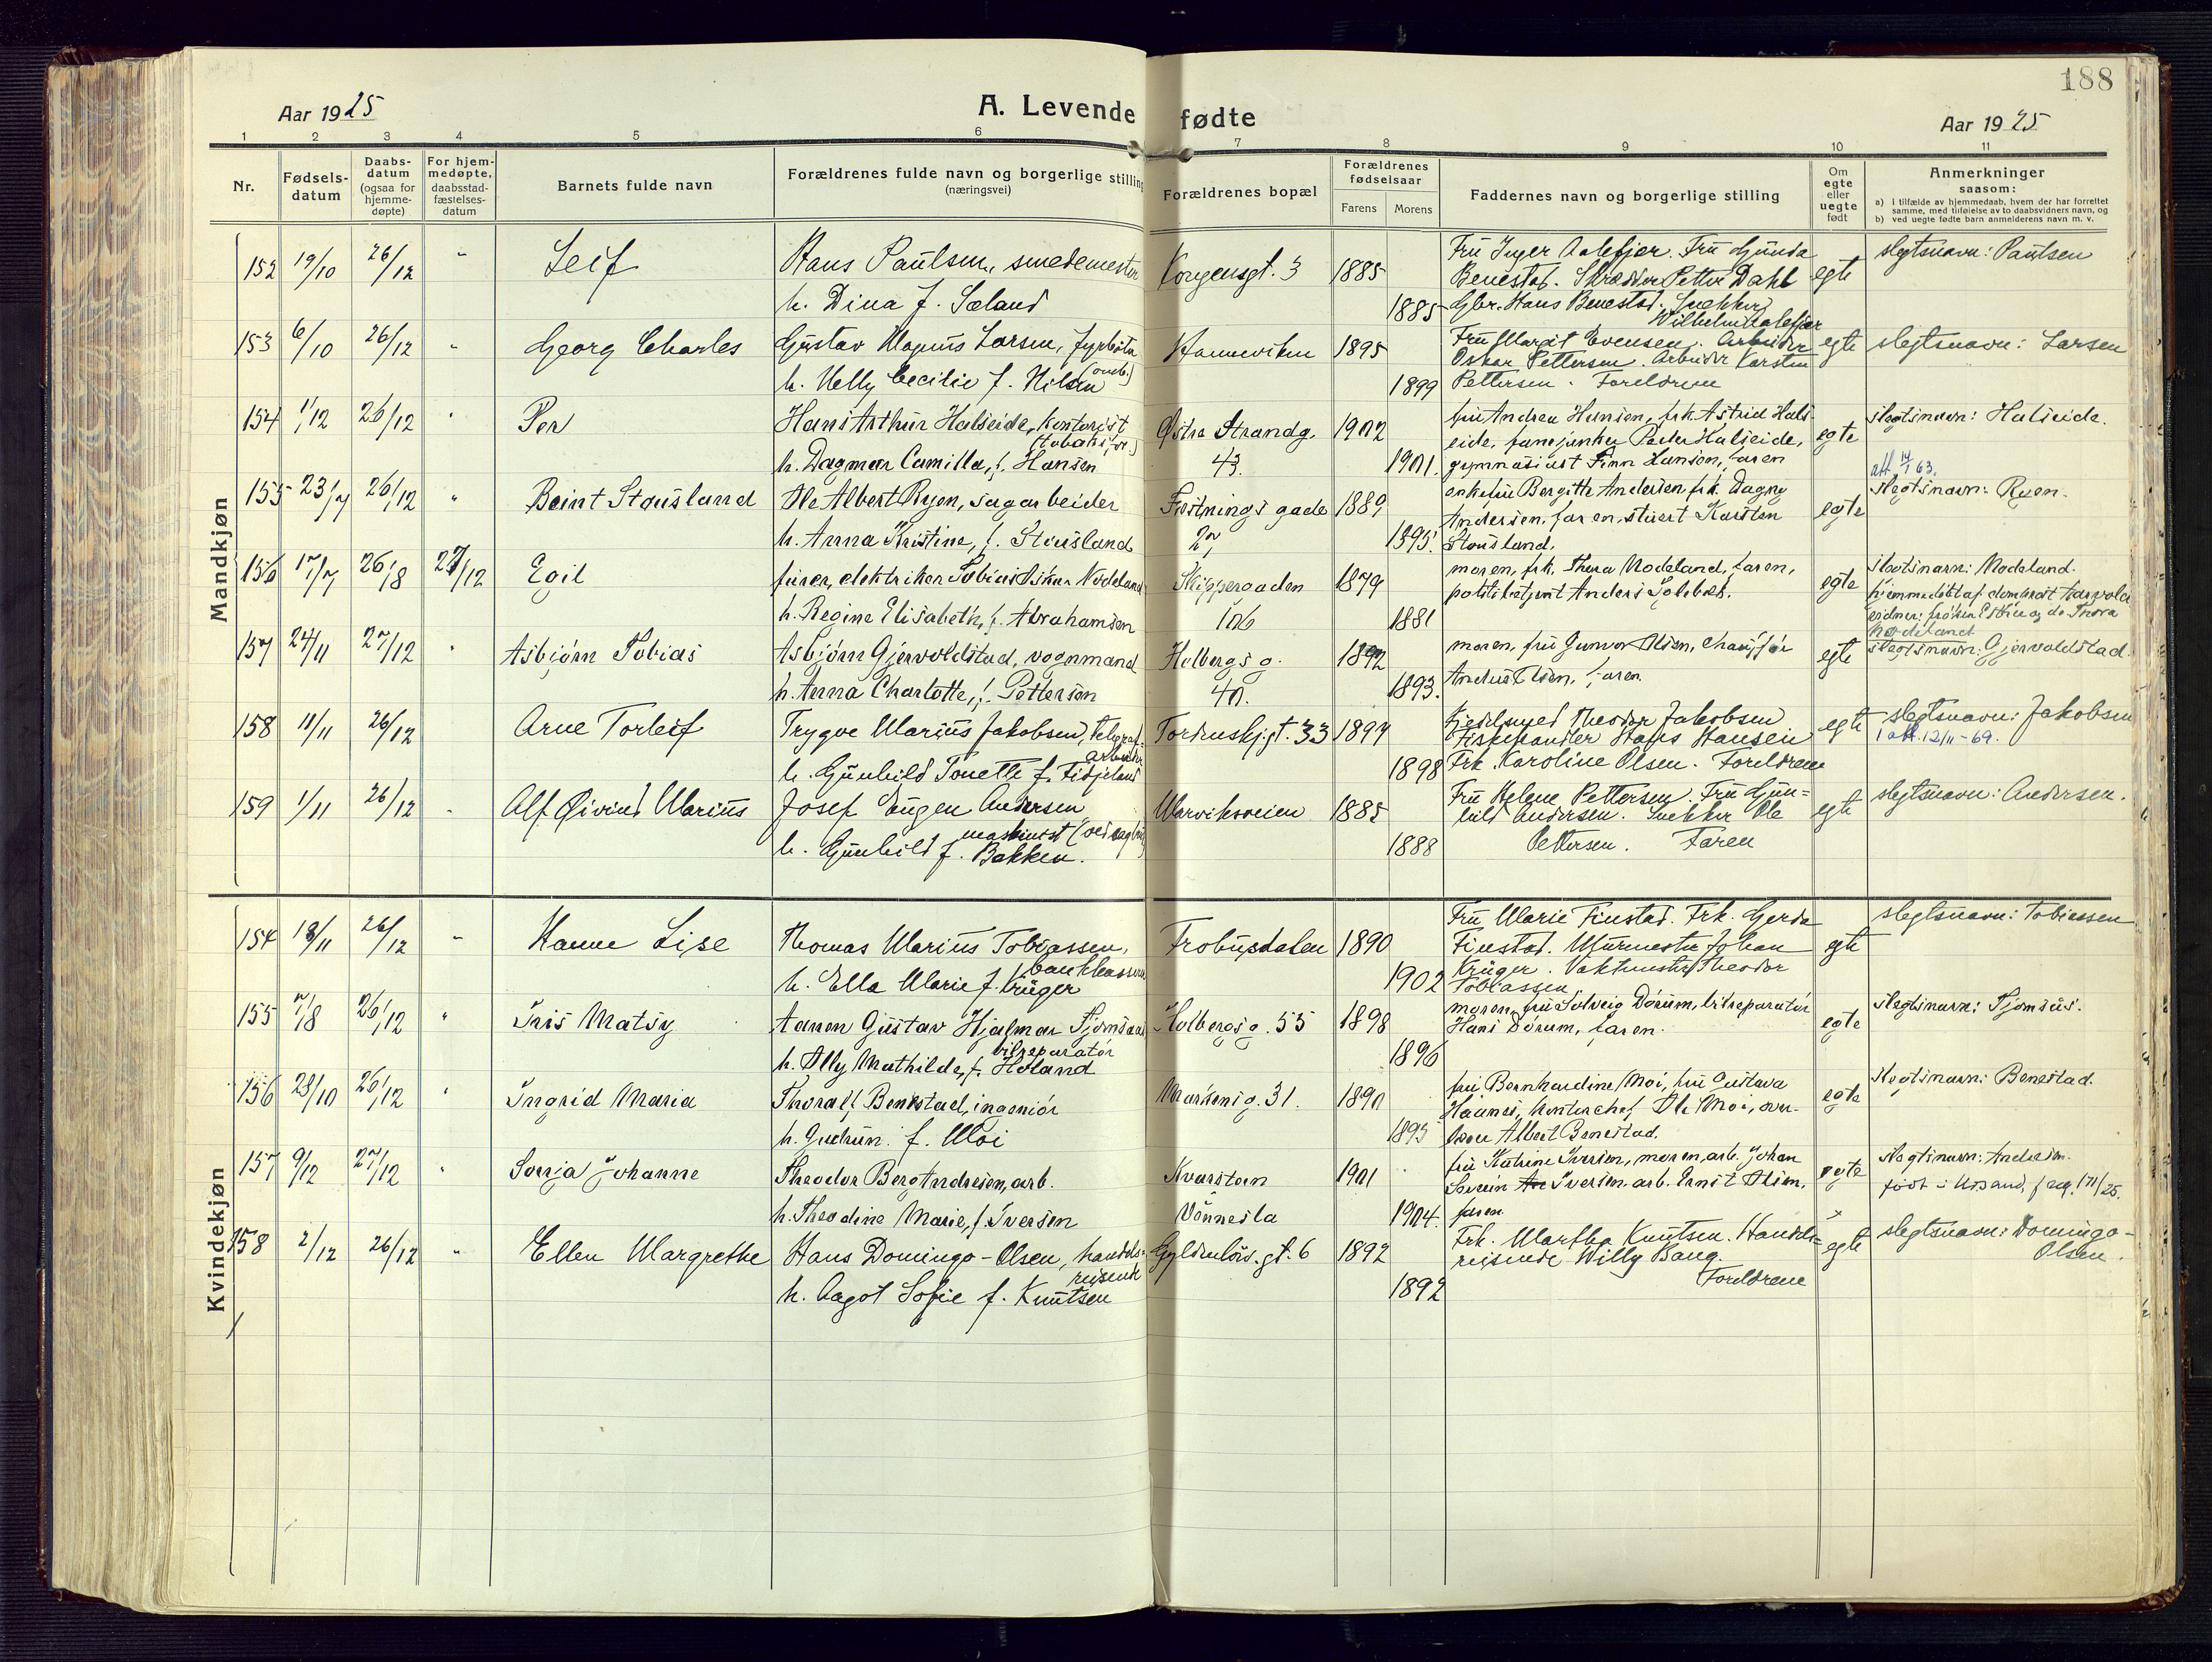 188
Aar 1925
A. Levende fødte
Aar 1925
1 2 3 4 5 6 7 8 9 10 11
Nr.
Fødsels-
datum
Daabs-
datum
(ogsaa for
hjemme-
døpte)
For hjem-
medøpte,
daabsstad-
fæstelses-
datum
Barnets fulde navn
Forældrenes fulde navn og borgerlige stilling
(næringsvei)
Forældrenes bopæl
Forældrenes
fødselsaar
Farens Morens
Faddernes navn og borgerlige stilling
Om
egte
eller
uegte
født
Anmerkninger
saasom:
a) i tilfælde av hjemmedaab, hvem der har forrettet
samme, med tilføielse av to daabsvidners navn, og
b) ved uegte fødte barn anmelderens navn m. v.
Mandkjøn
152 19/10 26/12 " Leif
Hans Paulsen, smedemester
h. Dina f. Sæland
Kongensgt. 3 1885
1885
Fru Inger Aalefjer. Fru Gunda
Benestad. Skrædder Petter Dahl
Gbr. Hans Benestad. Snekker
Wilhelm Aalefjer
egte slegtsnavn: Paulsen
153 6/10 26/12 " Georg Charles
Gustav Magnus Larsen, fyrbøter
(omb.)
h. Nelly Cecilie f. Nilsen
Hanneviken 1895
1899
Fru Margit Evensen. Arbeider
Oskar Pettersen. Arbeider Karsten
Pettersen. Foreldrene
egte slegtsnavn: Larsen
154 1/12 26/12 " Per
Hans Arthur Halseide, kontorist
h. Dagmar Camilla, f. Hansen
Østre Strandg.
43. 1902
1901.
fru Andrea Hansen, frk. Astrid Hals-
eide, fanejunker Peder Halseide,
gymnasiast Finn Hansen, faren
egte slegtsnavn: Halseide.
att 14/1 63.
155 23/7 26/12 " Beint Stousland
Ole Albert Ryen, sagarbeider
h. Anna Kristine, f. Stousland
Festningsgade 1889
1895.
enkefru Bergitte Andersen frk. Dagny
Andersen, faren, stuert Karsten
Stousland.
egte slegtsnavn: Ryen.
156 17/7 26/8 27/12 Egil
furer, elektriker Tobias Oskar Nodeland
h. Regine Elisabeth, f. Abrahamsen
Skippergaden
106 1879
1881
moren, frk. Thora Nodeland, faren,
politibetjent Anders Solebak.
egte slegtsnavn: Nodeland.
hjemmedøbt af domprost Aarvold
vidner: frøken Esther og do. Thora
Nodeland
157 24/11 27/12 " Asbjørn Tobias
Asbjørn Gjervoldstad, vognmand
h. Anna Charlotte, f. Pettersen
Holbergs g.
40. 1892
1893.
moren, fru Gunvor Olsen, chauffør
Andreas Olsen, faren
egte slegtsnavn: Gjervoldstad.
158 11/11 26/12 Arne Torleif
Trygve Marius Jakobsen, telegraf-
arbeider
h. Gunhild Tonette f. Fidjeland
Tordenskj.gt. 33 1897
1898
Kjedelsmed Theodor Jakobsen
Fiskehandler Hans Hansen
Frk. Karoline Olsen. Foreldrene
egte slegtsnavn: Jakobsen
1 att. 12/11-69.
159 1/11 26/12 " Alf Øivind Marius
Josef Eugen Andersen
h. Gunhild f. Bakken.
Marviksveien 1885
1888
Fru Helene Pettersen. Fru Gun=
hild Andersen. Snekker Ole
Pettersen. Faren
egte slegtsnavn: Andersen.
Kvindekjøn
154 18/11 26/12 " Hanne Lise
Thomas Marius Tobiassen,
bankkasserer
h. Ella Marie f. Krüger
Frobusdalen 1890
1902
Fru Marie Finstad. Frk. Gerda
Finstad. Murmester Johan
Krüger. Vaktmester Theodor
Tobiassen
egte slegtsnavn: Tobiassen
155 7/8 26/12 " Iris Matsy
Aanon Gustav Hjalmar Tjomsaas
bilreparatør
h. Olly Mathilde, f. Høland
Holbergsg. 55 1898
1896
moren, fru Solveig Dørum, bilreparatør
Hans Dørum, faren.
egte slegtsnavn: Tjomsås.
156 28/10 26/12 " Ingrid Maria
Thoralf Benestad, ingeniør
h. Gudrun f. Moi
Markensg. 31. 1890
1895
fru Bernhardine Moi, fru Gustava
Haanes, kontorchef Ole Moi,
Albert Benestad.
egte slegtsnavn: Benestad.
157 9/12 27/12 " Sonja Johanne
Theodor Berg Andresen, arb.
h. Theodine Marie, f. Iversen
Kvarstein
Vennesla 1901
1904.
fru Katrine Iversen, moren, arb. Johan
Severin Iversen, arb. Ernst Olsen,
faren
egte slegtsnavn: Andresen.
158 2/12 26/12 " Ellen Margrethe
Hans Domingo-Olsen, handels=
reisende
h. Aagot Sofie f. Knutsen
Gyldenløvsgt. 6 1892
1892
Frk. Martha Knutsen. Handels=
reisende Willy Bang
Foreldrene
egte slegtsnavn: Domingo-
Olsen.